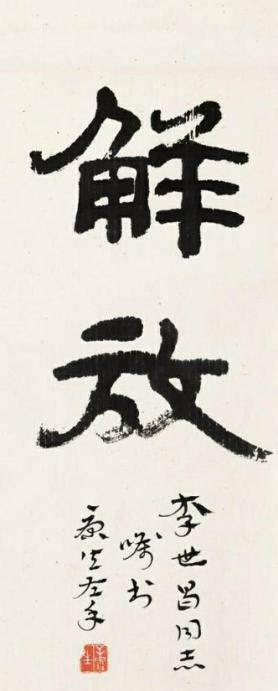 解放
李世昌同志
嘱书
康生左手